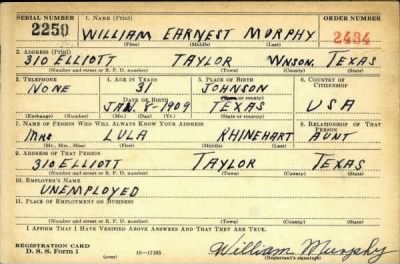 SERIAL NUMBER 1. NAME (Print) ORDER NUMBER
2250 WILLIAM EARNEST MURPHY 2484
(First) (Middle) (Last)
2. ADDRESS (Print)
310 ELLIOTT TAYLOR WNSON. TEXAS
(Number and street or R. F. D. number) (Town) (County) (State)
3. TELEPHONE 4. AGE IN YEARS 5. PLACE OF BIRTH 6. COUNTRY OF CITIZENSHIP
NONE 31 JOHNSON
DATE OF BIRTH (Town or county)
JAN. 8-1909 TEXAS USA
(Exchange) (Number) (Mo.) (Day) (Yr.) (State or country)
7. NAME OF PERSON WHO WILL ALWAYS KNOW YOUR ADDRESS 8. RELATIONSHIP OF THAT PERSON
MRS LULA RHINEHART AUNT
(Mr., Mrs., Miss) (First) (Middle) (Last)
9. ADDRESS OF THAT PERSON
310 ELLIOTT TAYLOR TEXAS
(Number and street or R. F. D. number) (Town) (County) (State)
10. EMPLOYER'S NAME
UNEMPLOYED
11. PLACE OF EMPLOYMENT OR BUSINESS
(Number and street or R. F. D. number) (Town) (County) (State)
I AFFIRM THAT I HAVE VERIFIED ABOVE ANSWERS AND THAT THEY ARE TRUE.
REGISTRATION CARD
D. S. S. Form 1 (over) 16—17105 William Murphy
(Registrant's signature)